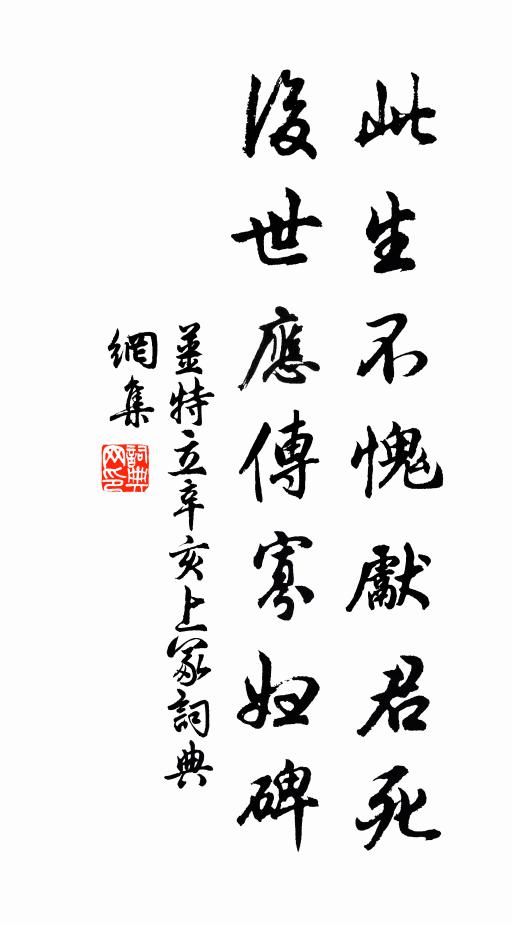 此生不愧獻君死
後世應傳寡婦碑
薑特立辛亥上冢詞典
網集
詞典
網印